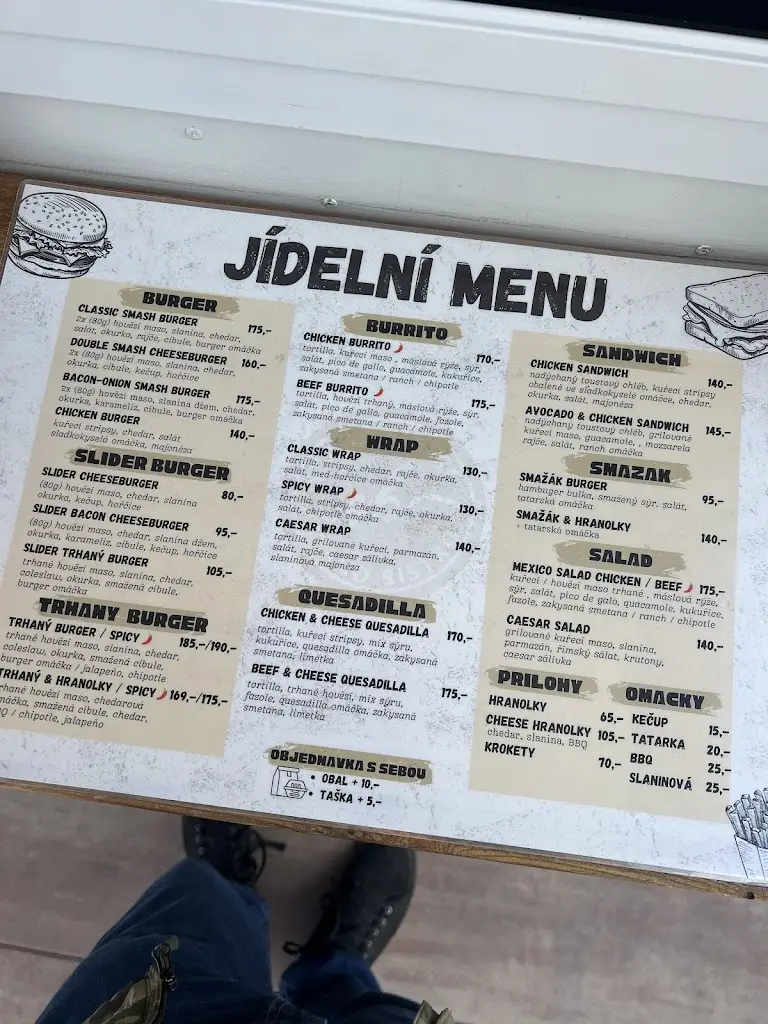 JÍDELNÍ MENU
BURGER
CLASSIC SMASH BURGER 175,-
2x (80g) hovězí maso, slanina, chedar,
salát, okurka, rajče, cibule, burger omáčka
DOUBLE SMASH CHEESEBURGER 160,-
2x (80g) hovězí maso, slanina, chedar,
okurka, cibule, kečup, hořčice
BACON-ONION SMASH BURGER 175,-
2x (80g) hovězí maso, slanina džem, chedar,
okurka, karameliz. cibule, burger omáčka
CHICKEN BURGER 140,-
kuřecí stripsy, chedar, salát
sladkokyselá omáčka, majonéza
SLIDER BURGER
SLIDER CHEESEBURGER 80,-
(80g) hovězí maso, chedar, slanina
okurka, kečup, hořčice
SLIDER BACON CHEESEBURGER 95,-
(80g) hovězí maso, chedar, slanina džem,
okurka, karameliz. cibule, kečup, hořčice
SLIDER TRHANÝ BURGER 105,-
trhané hovězí maso, slanina, chedar,
coleslaw, okurka, smažená cibule,
burger omáčka
TRHANY BURGER
TRHANÝ BURGER / SPICY 185,-/190,-
trhané hovězí maso, slanina, chedar,
coleslaw, okurka, smažená cibule,
burger omáčka / jalapeño, chipotle
TRHANÝ & HRANOLKY / SPICY 169,-/175,-
trhané hovězí maso, chedarová
omáčka, smažená cibule, chedar,
BBQ / chipotle, jalapeño
BURRITO
CHICKEN BURRITO 170,-
tortilla, kuřecí maso, máslová rýže, sýr,
salát, pico de gallo, guacamole, kukuřice,
zakysaná smetana / ranch / chipotle
BEEF BURRITO 175,-
tortilla, hovězí trhaný, máslová rýže, sýr,
salát, pico de gallo, guacamole, fazole,
zakysaná smetana / ranch / chipotle
WRAP
CLASSIC WRAP 130,-
tortilla, stripsy, chedar, rajče, okurka,
salát, med-hořčice omáčka
SPICY WRAP 130,-
tortilla, stripsy, chedar, rajče, okurka,
salát, chipotle omáčka
CAESAR WRAP 140,-
tortilla, grilované kuřecí, parmazán,
salát, rajče, caesar zálivka,
slaninová majonéza
QUESADILLA
CHICKEN & CHEESE QUESADILLA 170,-
tortilla, kuřecí stripsy, mix sýru,
kukuřice, quesadilla omáčka, zakysaná
smetana, limetka
BEEF & CHEESE QUESADILLA 175,-
tortilla, trhané hovězí, mix sýru,
fazole, quesadilla omáčka, zakysaná
smetana, limetka
OBJEDNAVKA S SEBOU
• OBAL + 10,-
• TAŠKA + 5,-
SANDWICH
CHICKEN SANDWICH 140,-
nadýchaný toustový chléb, kuřecí stripsy
obalené ve sladkokyselé omáčce, chedar,
okurka, salát, majonéza
AVOCADO & CHICKEN SANDWICH 145,-
nadýchaný toustový chléb, grilované
kuřecí maso, guacamole, , mozzarela
rajče, salát, ranch omáčka
SMAZAK
SMAŽÁK BURGER 95,-
hamburger bulka, smažený sýr, salát,
tatarská omáčka
SMAŽÁK & HRANOLKY 140,-
+ tatarská omáčka
SALAD
MEXICO SALAD CHICKEN / BEEF 175,-
kuřecí / hovězí maso trhané, máslová rýže,
sýr, salát, pico de gallo, guacamole, kukuřice,
fazole, zakysaná smetana / ranch / chipotle
CAESAR SALAD 140,-
grilované kuřecí maso, slanina,
parmazán, římský salát, krutony,
caesar zálivka
PRILOHY
HRANOLKY 65,-
CHEESE HRANOLKY 105,-
chedar, slanina, BBQ
KROKETY 70,-
OMACKY
KEČUP 15,-
TATARKA 20,-
BBQ 25,-
SLANINOVÁ 25,-